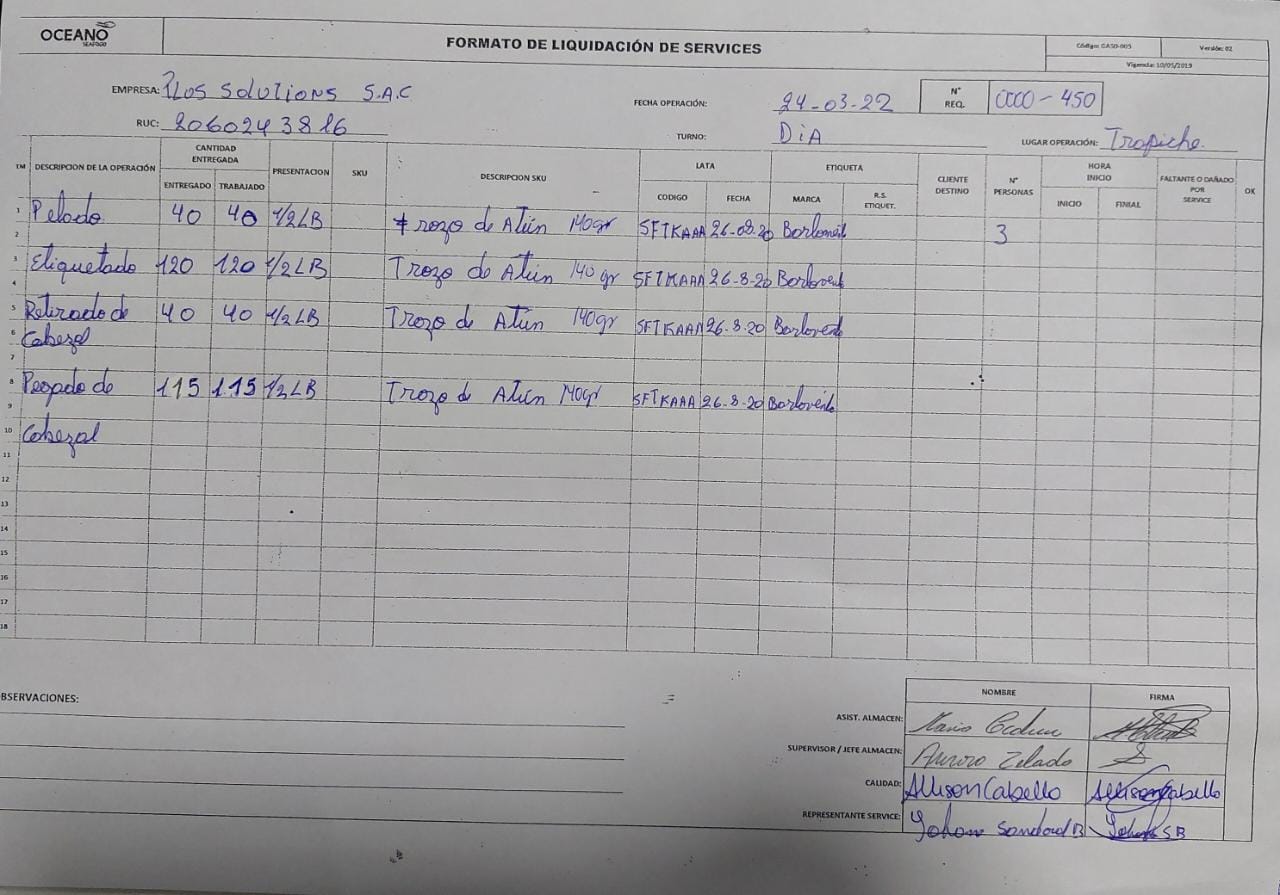 OCEANO
SEAFOOD
FORMATO DE LIQUIDACIÓN DE SERVICES
Código: GASO-005 Versión: 02
Vigencia: 10/05/2019
EMPRESA: Plos Solutions S.A.C
FECHA OPERACIÓN: 24-03-22
N° REQ. 0000-450
RUC: 20602438816
TURNO: DiA
LUGAR OPERACIÓN: Trapiche.
ITEM DESCRIPCION DE LA OPERACIÓN CANTIDAD ENTREGADA PRESENTACION SKU DESCRIPCION SKU LATA ETIQUETA CLIENTE DESTINO N° PERSONAS HORA INICIO FALTANTE O DAÑADO POR SERVICE OK
ENTREGADO TRABAJADO CODIGO FECHA MARCA R.S. ETIQUET. INICIO FINIAL
1 Pelado 40 40 1/2LB trozo de Atún 140gr SFTKAAA 26-08-20 Barlovento 3
2
3 Etiquetado 120 120 1/2LB Trozo de Atún 140gr SFTKAAA 26-8-20 Barlovento
4
5 Retirado de 40 40 1/2LB Trozo de Atún 140gr SFTKAAA 26.8.20 Barlovento
6 Cabezal
7
8 Pegado de 115 115 1/2LB Trozo de Atún 140gr SFTKAAA 26-8-20 Barlovento
9
10 Cabezal
11
12
13
14
15
16
17
18
OBSERVACIONES:
NOMBRE FIRMA
ASIST. ALMACEN: Mario
SUPERVISOR / JEFE ALMACEN: Arturo Zelada
CALIDAD: Allison Cabello Allison Cabello
REPRESENTANTE SERVICE: Yohan Sandoval B Yohan SB